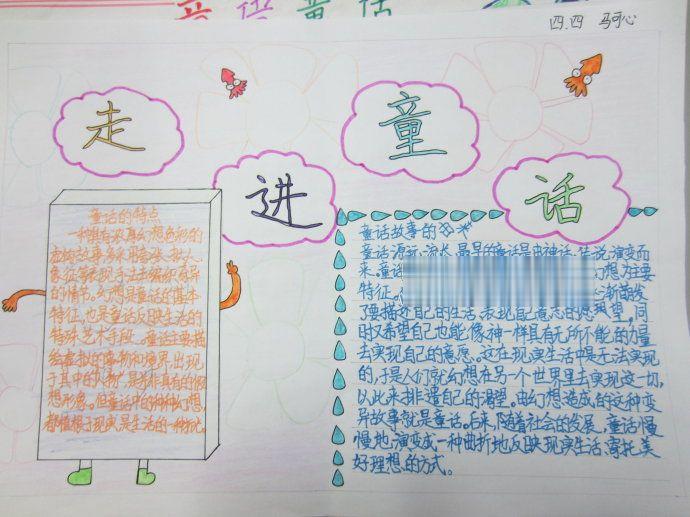 四.四
童话
走进童话
童话的特点
一种具有浓厚幻想色彩的
的情节。幻想是童话的基本
特征,也是童话反映生活的
特殊艺术手段。童话主要描
绘虚拟的事物和境界,出现
于其中的"人物",是并非真有的假
想形象。但童话中的种种幻想,
都植根于现实,是生活的一种
童话故事的
童话源远流长,最早的童话是由神话、传说演变而
来。童话
幻想为主要
特征。
渐萌发
了要描述自己的生活、表现自己意志的愿望。同
时又希望自己也能像神一样具有无所不能的力量
去实现自己的意愿。这在现实生活中是无法实现
的,于是人们就幻想在另一个世界里去实现这一切,
以此来排遣自己的渴望。由幻想造成的这种变
异故事就是童话。后来,随着社会的发展,童话慢
慢地演变成一种曲折地反映现实生活、寄托美
好理想的方式。